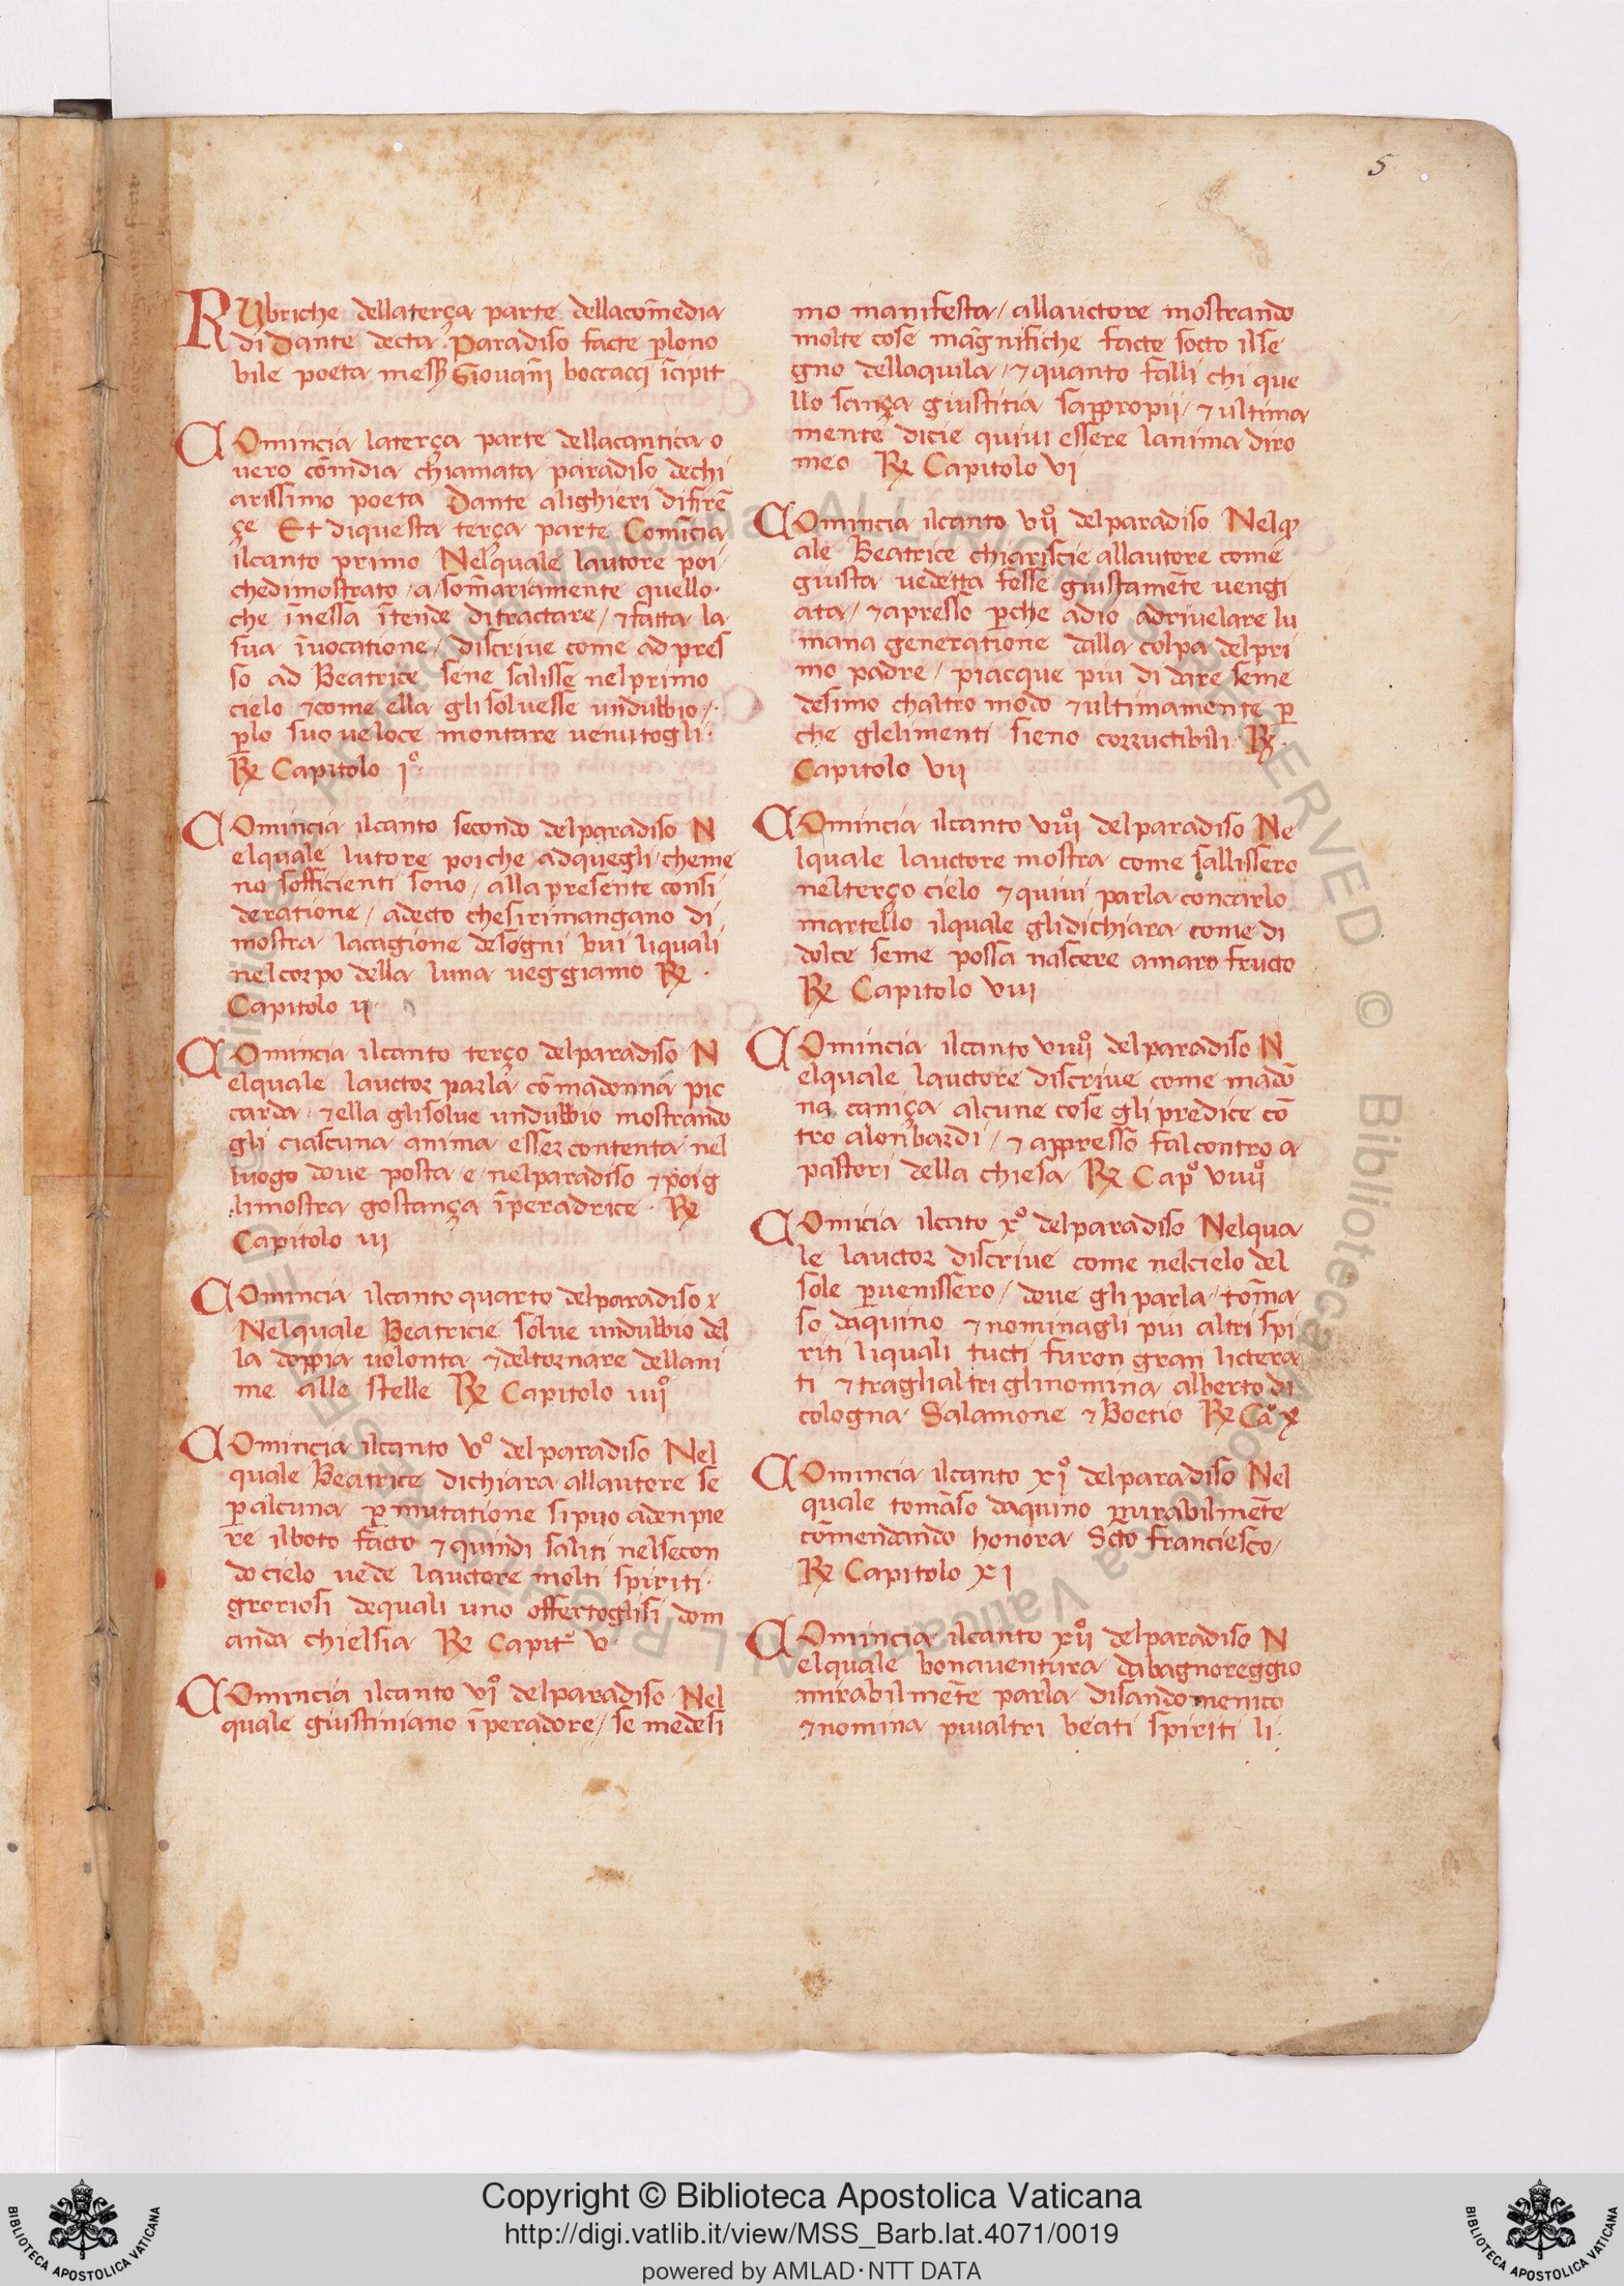 5
RUbriche dellaterça parte dellacom̄edia
di Dante decta Paradiso facte p̱lono
bile poeta mess̃ Giovan̄i boccacci īcipit
COmincia laterça parte dellacantica o
vero com̄dia chiamata paradiso dechi
arissimo poeta Dante alighieri difirē
çe Et diquesta terça parte Comīcia
ilcanto primo Nelquale lautore poi
chedimostrato a som̄ariamente quello
che īnessa ītende ditractare / ⁊ fatta la
sua īvocatione / discrive come ad pres
so ad Beatrice sene salisse nelprimo
cielo ⁊come ella glisolvesse undubbio /
p̱lo suo veloce montare venutogli
℞ Capitolo Iº
COmincia ilcanto secondo delparadiso N
elquale lutore poiche adquegli cheme
no sofficienti sono / alla presente consi
deratione / adecto chesirimangano di
mostra lacagione desegni bui liquali
nelcorpo della luna veggiamo ℞
Capitolo ii
COmincia ilcanto terço delparadiso N
elquale lauctor parla cō madonna pic
carda ⁊ ella glisolve undubbio mostrando
gli ciascuna anima esser contenta nel
luogo dove posta e nelparadiso ⁊ poig
limostra gostança īperadrice ℞
Capitolo iii
COmincia ilcanto quarto delparadiso x
Nelquale Beatricie solve undubbio del
la doppia volonta ⁊ deltornare dellani
me alle stelle ℞ Capitolo iiiiº
COmincia ilcanto vº delparadiso Nel
quale Beatrice dichiara allautore se
p̱ alcuna p̱mutatione sipuo adenpie
re ilboto facto ⁊ quindi saliti nelsecon
do cielo vede lauctore molti spiriti
groriosi dequali uno offertoglisi dom
anda chielsia ℞ Capitº v
COmincia ilcanto viº delparadiso Nel
quale giustiniano īperadore / se medesi
mo manifesta / allauctore mostrando
molte cose māgnifiche facte socto ilse
gno dellaquila / ⁊ quanto falli chi que
llo sança giustitia sap̱propii / ⁊ ultima
mente dicie quivi essere lanima diro
meo ℞ Capitolo vi
COmincia ilcanto viiº delparadiso Nelq
ale Beatrice chiariscie allautore come
giusta vedetta fesse giustamēte vengi
ata / ⁊ apresso p̱che adio adrivelare lu
mana generatione dalla colpa delpri
mo padre / piacque piu di dare seme
desimo chaltro modo ⁊ ultimamente p̱
che glelimenti sieno corructibili ℞
Capitolo vii
COmincia ilcanto viiiº delparadiso Ne
lquale lauctore mostra come sallissero
nelterço cielo ⁊ quivi parla concarlo
martello ilquale glidichiara come di
dolce seme possa nascere amaro fructo
℞ Capitolo viii
COmincia ilcanto viiiiº delparadiso N
elquale lauctore discrive come madō
na caniça alcune cose gli predice cō
tro alonbardi / ⁊ appresso fal contro a
pastori della chiesa ℞ Capº viiiiº
COmīcia ilcāto xº delparadiso Nelqua
le lauctor discrive come nelcielo del
sole p̱venissero / dove gli parla tōma
so daquino ⁊ nominagli piu altri spi
riti liquali tucti furon gran lictera
ti ⁊ traglialtri glinomina alberto di
cologna Salamone ⁊ Boetio ℞ Caº x
COmincia ilcanto xiº delparadiso Nel
quale tomāso daquino mirabilmēte
cōmendando honora Scto franciesco /
℞ Capitolo xi
COmincia ilcanto xiiº delparadiso N
elquale bonaventura dabagnoreggio
mirabilmēte parla disandomenico
⁊nomina piualtri beati spiriti li
Copyright © Biblioteca Apostolica Vaticana
http://digi.vatlib.it/view/MSS_Barb.lat.4071/0019
powered by AMLAD·NTT DATA